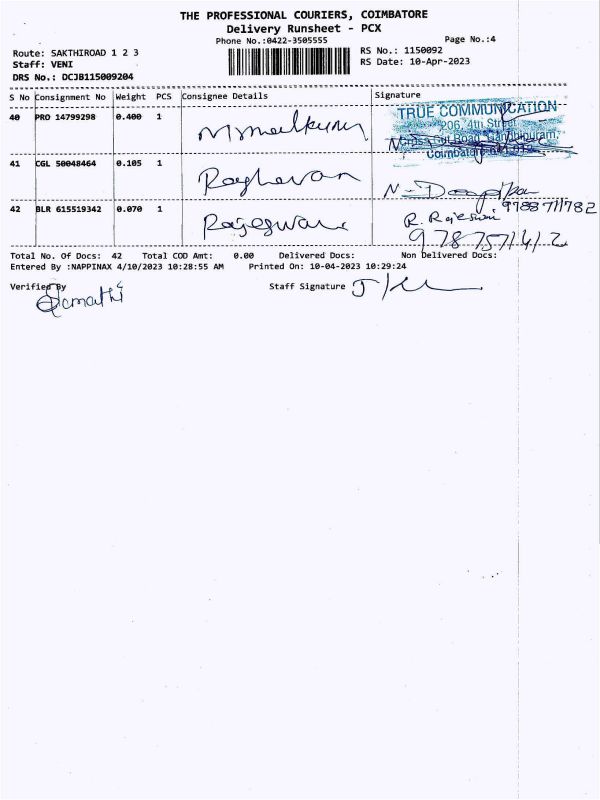 THE PROFESSIONAL COURIERS, COIMBATORE
Delivery Runsheet - PCX
Phone No.:0422-3505555
Page No.:4
Route: SAKTHIROAD 1 2 3
RS No.: 1150092
Staff: VENI
RS Date: 10-Apr-2023
DRS No.: DCJB115009204
S No Consignment No Weight PCS Consignee Details Signature
40 PRO 14799298 0.400 1
TRUE COMMUNICATION
206, 4th Street
Coimbatore
41 CGL 50048464 0.105 1 Raghavan
9788711782
42 BLR 615519342 0.070 1 Rajeswari R. Rajeswari
9787571412
Total No. Of Docs: 42 Total COD Amt: 0.00 Delivered Docs: Non Delivered Docs:
Entered By :NAPPINAX 4/10/2023 10:28:55 AM Printed On: 10-04-2023 10:29:24
Verified By Staff Signature